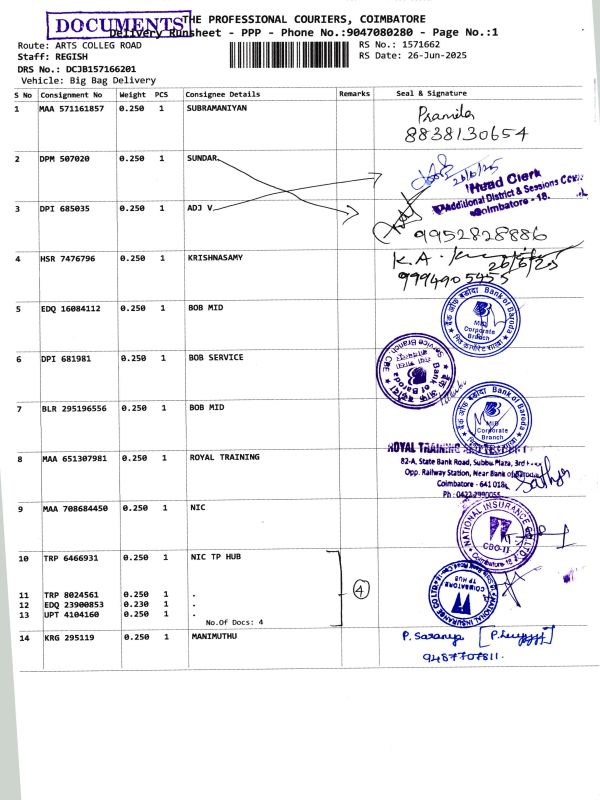 DOCUMENTS
THE PROFESSIONAL COURIERS, COIMBATORE
Delivery Runsheet - PPP - Phone No.:9047080280 - Page No.:1
Route: ARTS COLLEG ROAD
RS No.: 1571662
Staff: REGISH
RS Date: 26-Jun-2025
DRS No.: DCJB157166201
Vehicle: Big Bag Delivery
S No Consignment No Weight PCS Consignee Details Remarks Seal & Signature
1 MAA 571161857 0.250 1 SUBRAMANIYAN
Pramila
8838130654
2 DPM 507020 0.250 1 SUNDAR
26/6/25
Head Clerk
Additional District & Sessions Court
Coimbatore - 18.
3 DPI 685035 0.250 1 ADJ V
9952828886
4 HSR 7476796 0.250 1 KRISHNASAMY
K.A. 26/6/25
9994905455
5 EDQ 16084112 0.250 1 BOB MID
बैंक ऑफ़ बड़ौदा Bank of Baroda
Mid Corporate Branch
6 DPI 681981 0.250 1 BOB SERVICE
Bank of Baroda
Service Branch CBE
7 BLR 295196556 0.250 1 BOB MID
बैंक ऑफ़ बड़ौदा Bank of Baroda
Mid Corporate Branch
8 MAA 651307981 0.250 1 ROYAL TRAINING
ROYAL TRAINING
82-A, State Bank Road, Subbu Plaza, 3rd
Opp. Railway Station, Near Bank of Baroda
Coimbatore - 641 018
Ph : 0422-2990055
9 MAA 708684450 0.250 1 NIC
NATIONAL INSURANCE CO LTD
CBO-II
Coimbatore
10 TRP 6466931 0.250 1 NIC TP HUB
NATIONAL INSURANCE CO LTD
COIMBATORE
TP HUB
11 TRP 8024561 0.250 1 .
4
12 EDQ 23900853 0.230 1 .
13 UPT 4104160 0.250 1 .
No.Of Docs: 4
14 KRG 295119 0.250 1 MANIMUTHU
P. Saranya
9487707811.